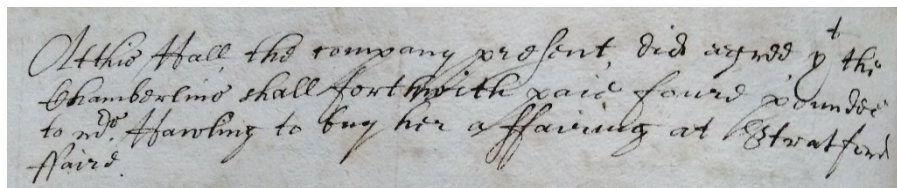 Att this Hall the company present did agree yt the
Chamberline shall forthwith paie foure poundes
to mrs Hawling to buy her a ffairing at Stratford
ffaire.